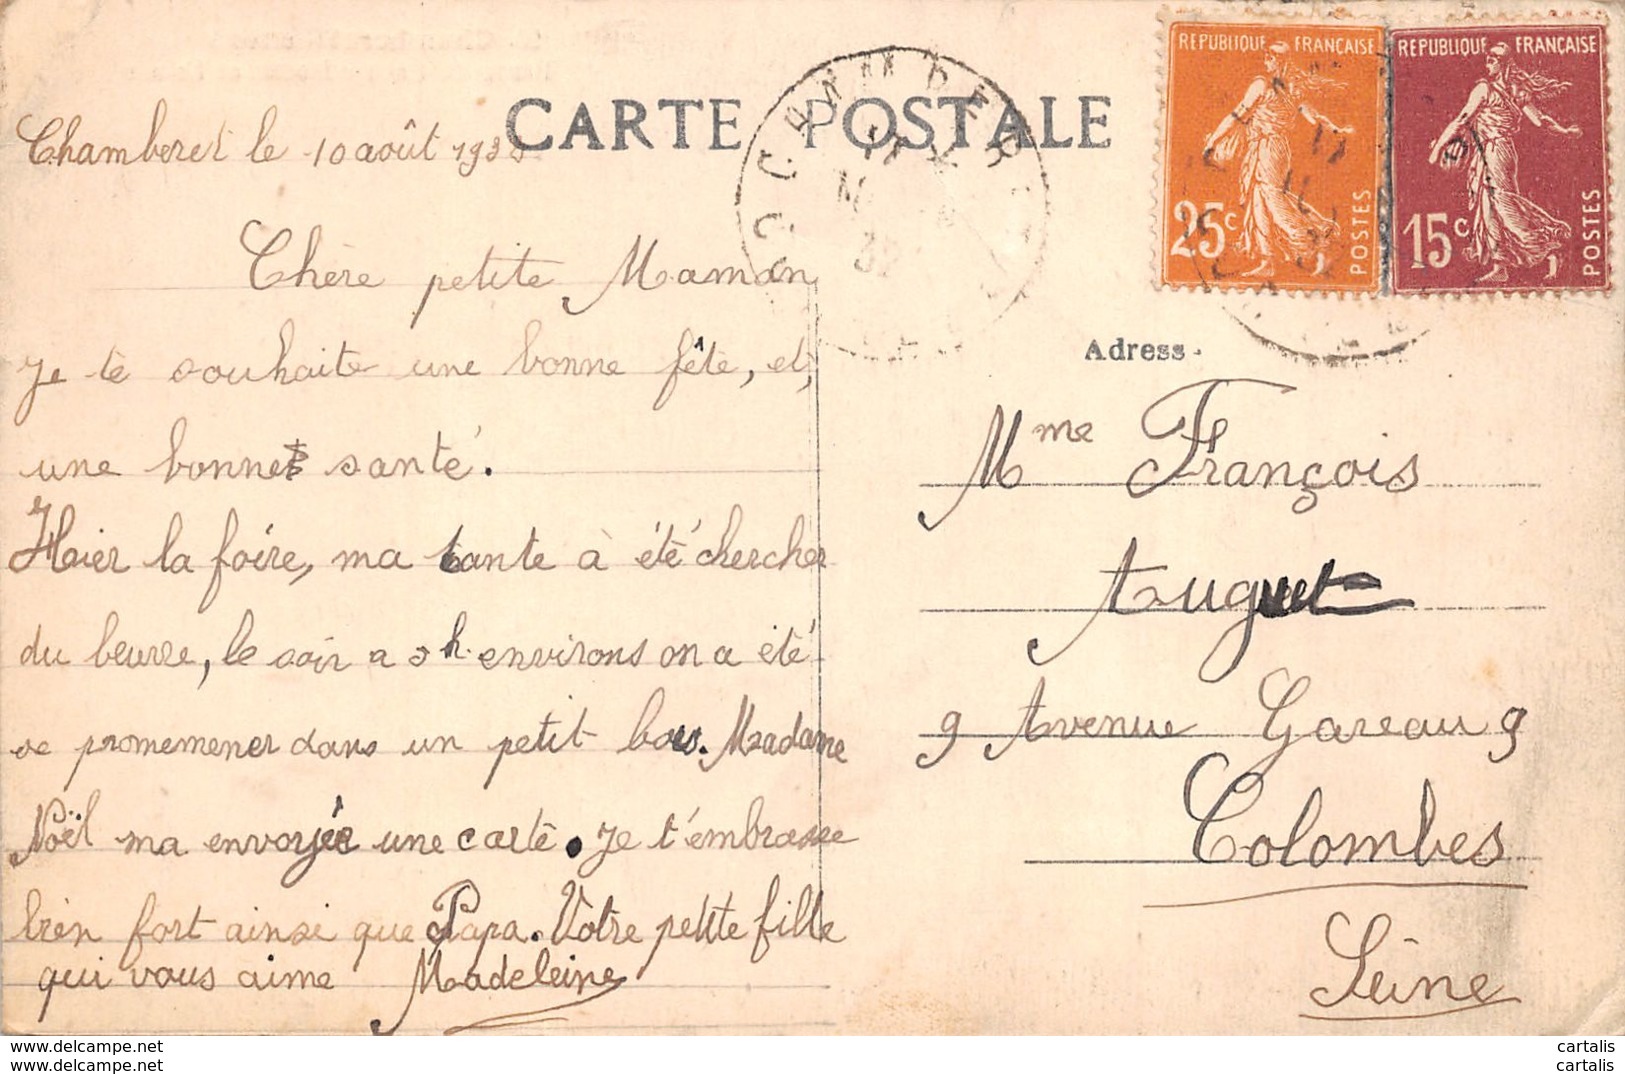 CARTE POSTALE
REPUBLIQUE FRANÇAISE
25c
POSTES
REPUBLIQUE FRANÇAISE
15c
POSTES
Chamberet le 10 août
Chère petite Maman
Je te souhaite une bonne fête, et,
une bonne santé.
Hier la foire, ma tante à été chercher
du beurre, le soir a h. environs on a été
se promemener dans un petit bois. Madame
Noël ma envoyée une carte. Je t'embrasse
bien fort ainsi que Papa. Votre petite fille
qui vous aime Madeleine
Adress
Mme François
Auguet
9 Avenue Gareau 9
Colombes
Seine
www.delcampe.net
www.delcampe.net
cartalis
cartalis